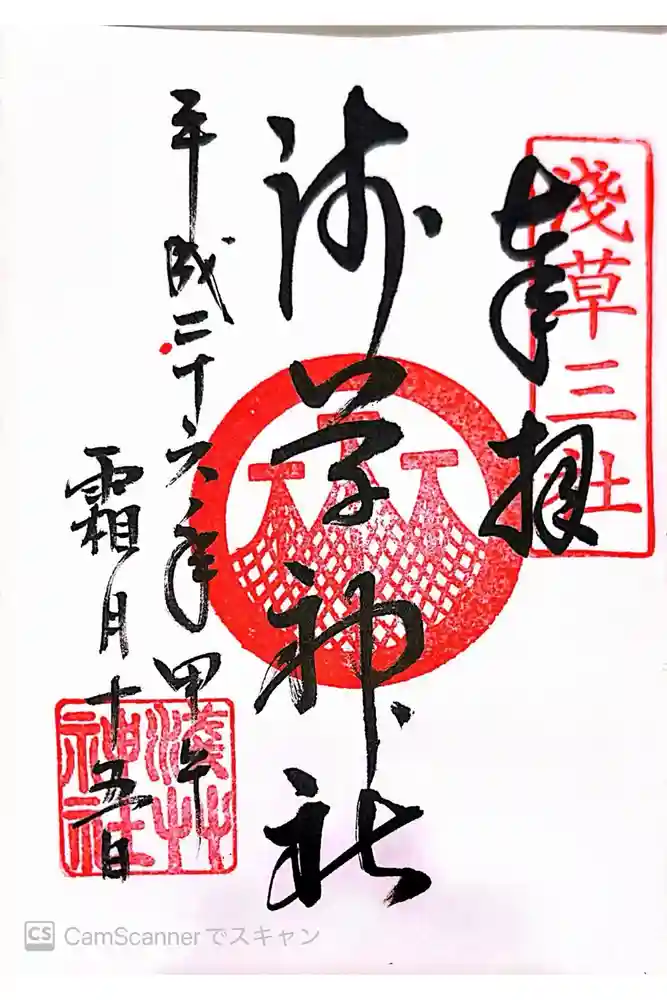 奉拝
淺草三社
浅草神社
平成二十六年甲午
霜月十五日
淺草神社
CS CamScannerでスキャン